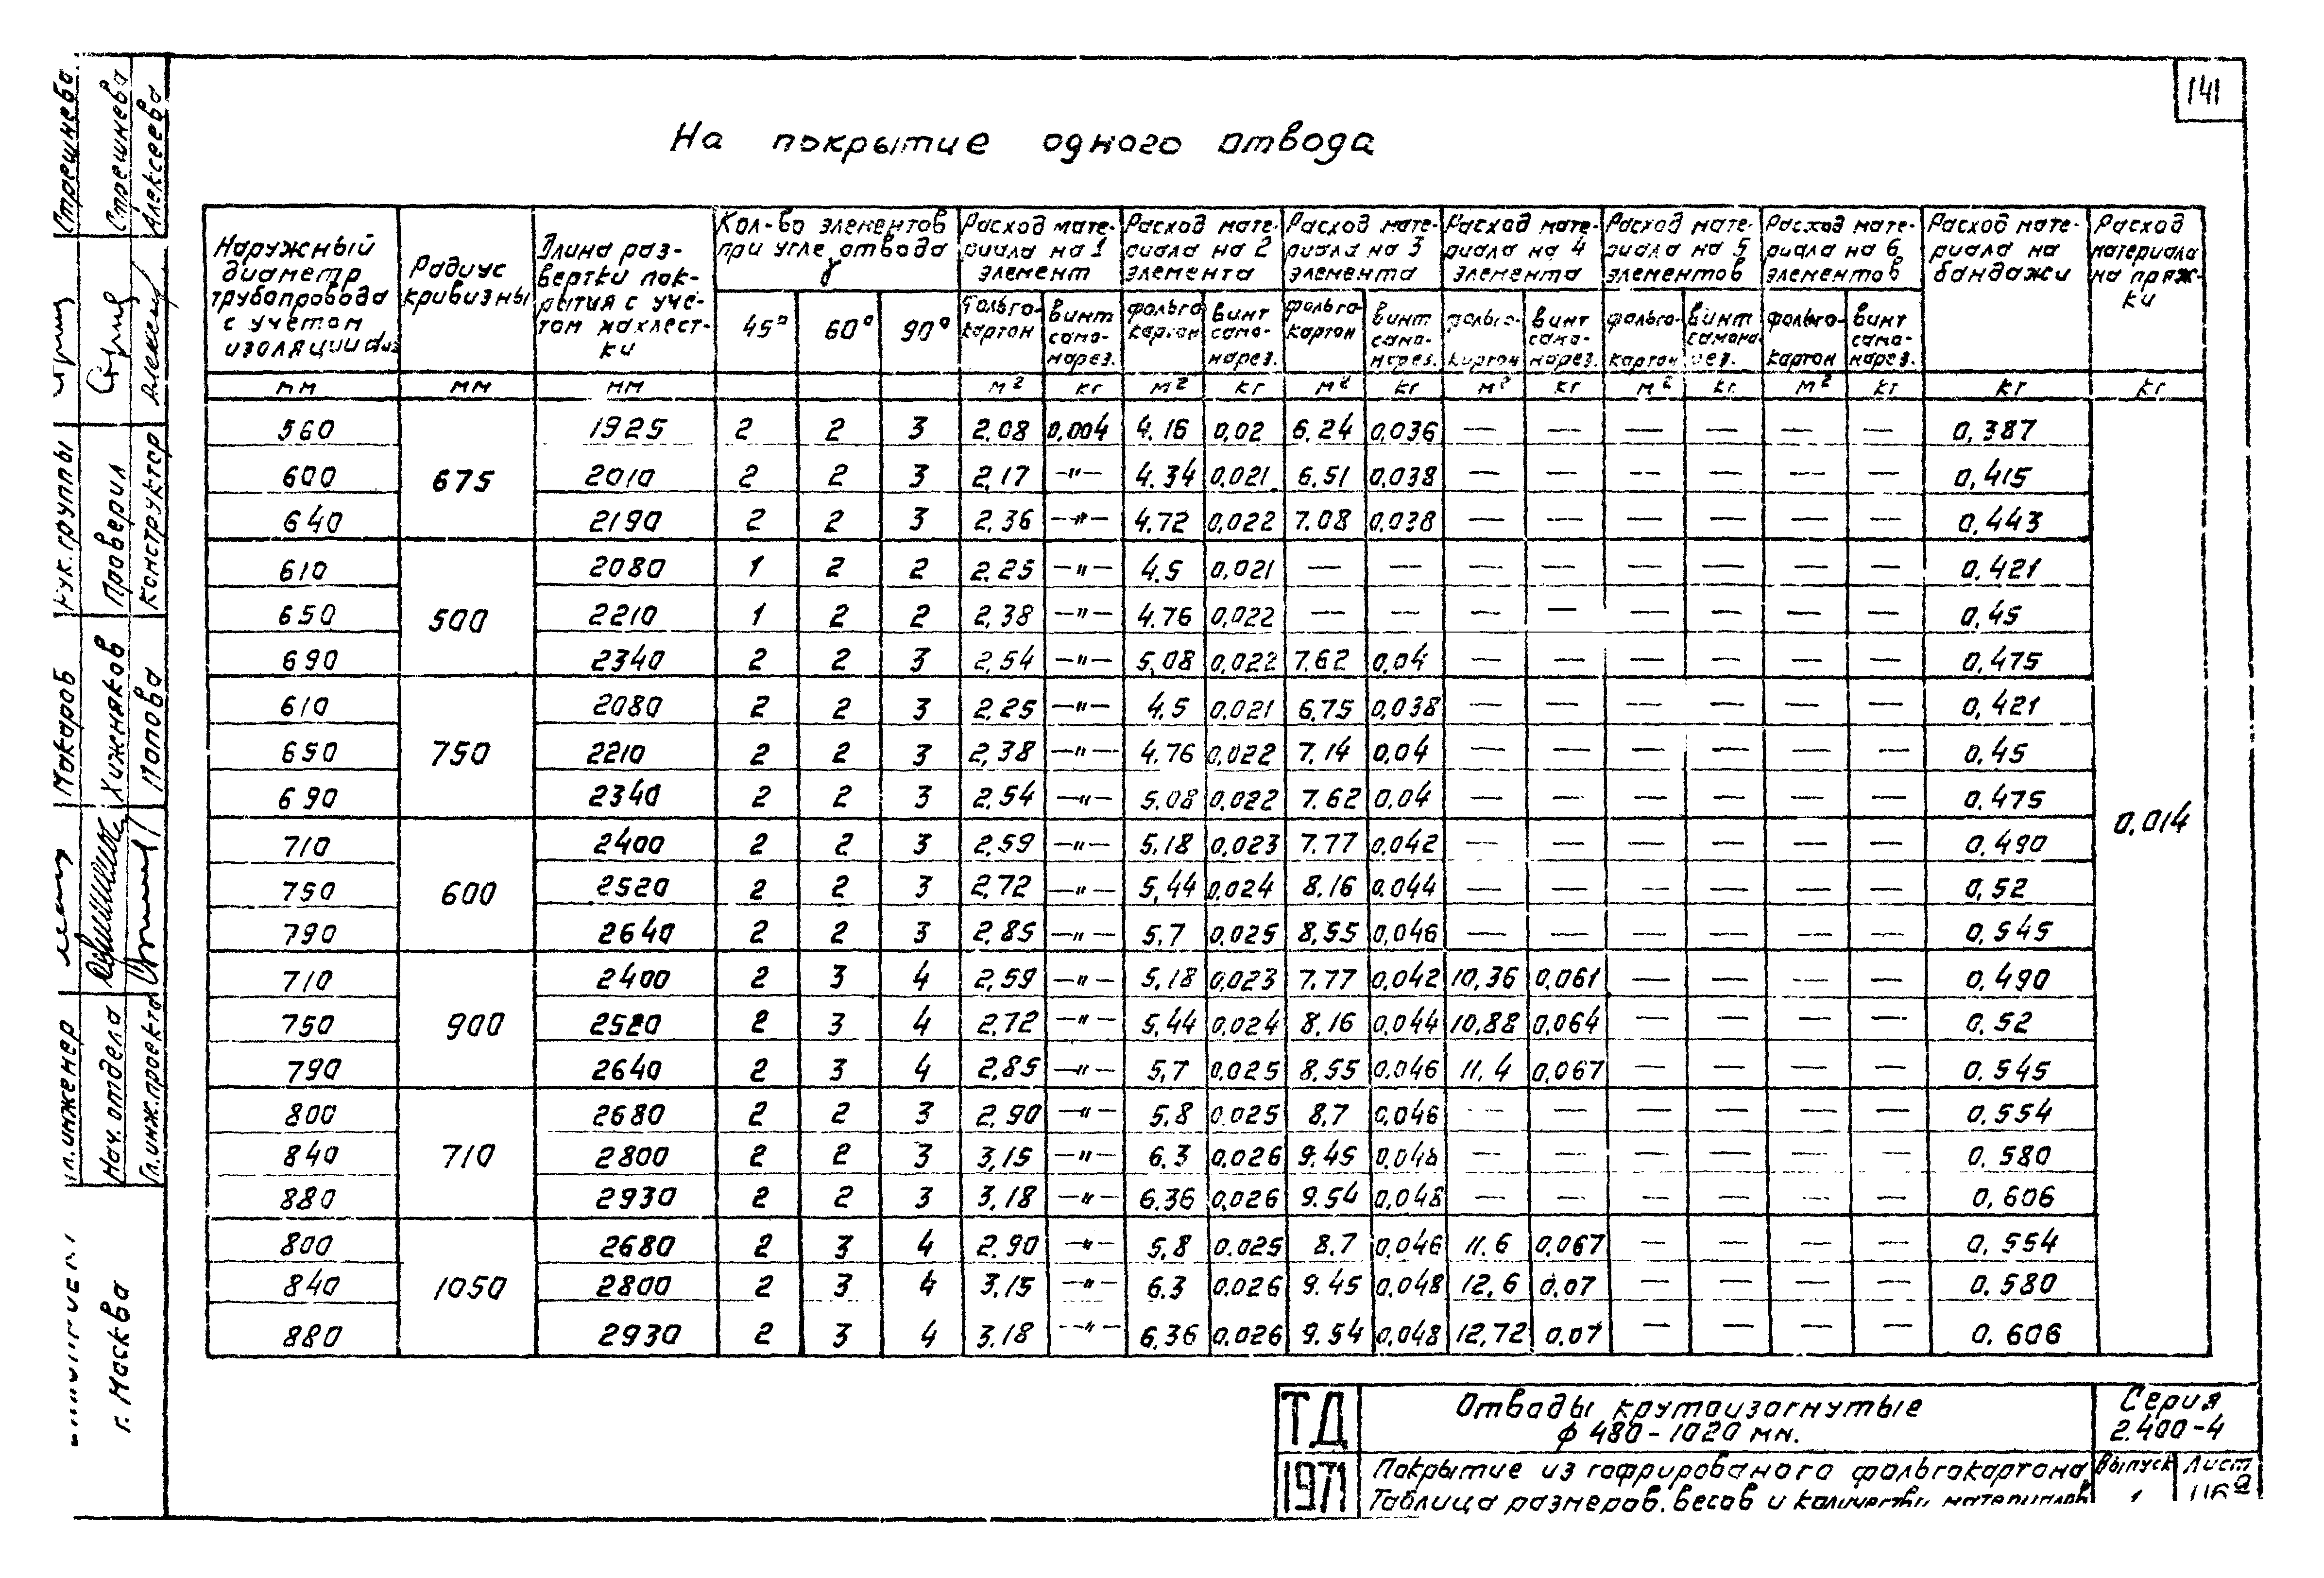 141
На покрытие одного отвода
Наружный диаметр трубопровода с учетом изоляции dиз
Радиус кривизны
Длина развертки покрытия с учетом нахлестки
Кол-во элементов при угле отвода γ
Расход материала на 1 элемент
Расход материала на 2 элемента
Расход материала на 3 элемента
Расход материала на 4 элемента
Расход материала на 5 элементов
Расход материала на 6 элементов
Расход материала на бандажи
Расход материала на пряжки
45° 60° 90° фольгокартон винт саморез. фольгокартон винт самонарез. фольгокартон винт самонарез. фольгокартон винт самонарез. фольгокартон винт самонарез. фольгокартон винт самонарез.
мм мм мм м² кг м² кг м² кг м² кг м² кг м² кг кг кг
560 1925 2 2 3 2,08 0,004 4.16 0,02 6.24 0,036 — — — — — — 0,387
600 675 2010 2 2 3 2,17 —"— 4.34 0,021 6.51 0,038 — — — — — — 0,415
640 2190 2 2 3 2,36 —"— 4.72 0,022 7.08 0,038 — — — — — — 0,443
610 2080 1 2 2 2.25 —"— 4.5 0,021 — — — — — — — — 0.421
650 500 2210 1 2 2 2,38 —"— 4.76 0,022 — — — — — — — — 0,45
690 2340 2 2 3 2,54 —"— 5,08 0,022 7.62 0,04 — — — — — — 0,475
610 2080 2 2 3 2.25 —"— 4.5 0,021 6,75 0,038 — — — — — — 0,421
650 750 2210 2 2 3 2,38 —"— 4.76 0,022 7.14 0,04 — — — — — — 0,45
690 2340 2 2 3 2,54 —"— 5.08 0,022 7.62 0.04 — — — — — — 0,475
0,014
710 2400 2 2 3 2,59 —"— 5,18 0,023 7.77 0,042 — — — — — — 0,490
750 600 2520 2 2 3 2,72 —"— 5,44 0,024 8.16 0,044 — — — — — — 0,52
790 2640 2 2 3 2,85 —"— 5,7 0,025 8,55 0,046 — — — — — — 0,545
710 2400 2 3 4 2,59 —"— 5,18 0,023 7.77 0,042 10,36 0,061 — — — — 0,490
750 900 2520 2 3 4 2,72 —"— 5,44 0,024 8,16 0,044 10,88 0,064 — — — — 0,52
790 2640 2 3 4 2,85 —"— 5,7 0,025 8.55 0,046 11,4 0,067 — — — — 0.545
800 2680 2 2 3 2,90 —"— 5,8 0.025 8,7 0,046 — — — — — — 0,554
840 710 2800 2 2 3 3,15 —"— 6.3 0,026 9.45 0,048 — — — — — — 0,580
880 2930 2 2 3 3,18 —"— 6.36 0,026 9.54 0,048 — — — — — — 0,606
800 2680 2 3 4 2.90 —"— 5,8 0.025 8.7 0,046 11.6 0,067 — — — — 0,554
840 1050 2800 2 3 4 3,15 —"— 6.3 0.026 9.45 0,048 12,6 0,07 — — — — 0.580
880 2930 2 3 4 3,18 —"— 6,36 0.026 9.54 0,048 12,72 0,07 — — — — 0.606
ТД
1971
Отводы крутоизогнутые
ф 480-1020 мм.
Покрытие из гофрированого фольгокартона
Таблица размеров, весов и количества материалов
Серия
2.400-4
Выпуск
1
Лист
Стрешнева
Стрешнева
Алексеева
Рук. группы
Проверил
Конструктор
Макаров
Хижняков
Попова
Гл. инженер
Нач. отдела
Гл. инж. проекта
г. Москва